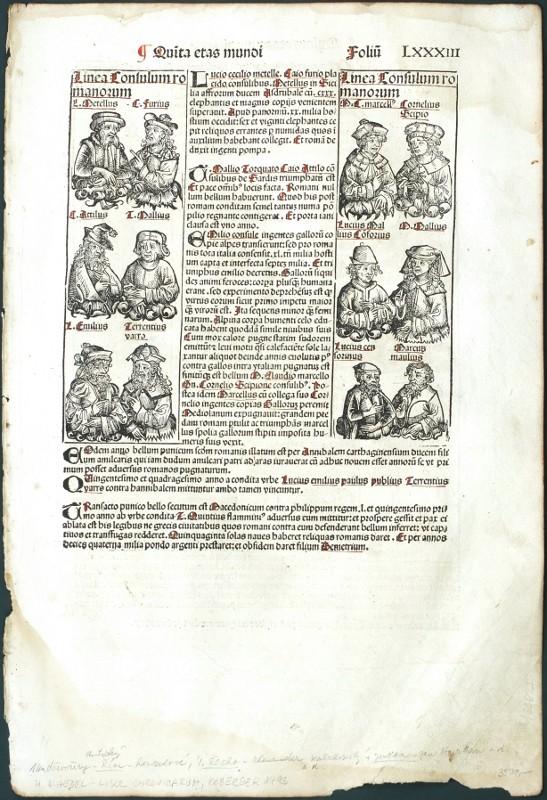 ¶ Quīta etas mundi Foliū LXXXIII
Linea Consulum ro
manorum
L. Metellus C. Furius
C. Attilus T. Mallius
L. Emilius Terrentius
varro
Lucio cecilio metello. Caio furio pla
cido consulibus. Metellus in Sici
lia affrorum ducem Asdrubalē cū. cxxx.
elephantis et magnis copijs venientem
superauit. Apud panormū. xx. milia ho
stium occidit: sex et viginti elephantes ce
pit reliquos errantes p numidas quos i
auxilium habebant collegit. Et romā de
duxit ingenti pompa.
T. Mallio Torquato Caio Attilo cō
sulibus de Sardis triumphatū est
Et pace omībꝰ locis facta. Romani nul
lum bellum habuerunt. Quod his post
romam conditam semel tantus numa pō
pilio regnante contigerat. Et porta iani
clausa est vno anno.
Emilio consule ingentes gallorū co
pie alpes transierunt: sed pro roma
nis tota italia consensit. xl. m̄ milia hosti
um capta et interfecta septē milia. Et tri
umphus emilio decretus. Gallorū siqui
des animi feroces: corpa plusq̄ humana
erant. sed experimento deprehēsus est qꝰ
virtus eorum sicut primo impetu maior
q̄ virorū est. Ita sequens minor q̄ femi
narum. Alpina corpa humenti celo edu
cata habent quoddā simile niuibus suis
Cum mox calore pugne statim sudorem
emittūt et leui motu q̄si calefacte sole la
xantur aliquot deinde annis
contra gallos intra ytaliam pugnatus est
finitūqꝫ est bellum M. Claudio marcello
Gn. Cornelio Scipione consulibꝰ. Po
stea idem Marcellus cū collega suo Cor
nelio ingentes copias Gallorum peremit
Mediolanum expugnauit: grandem pre
dam romam ptulit ac triumphās marcel
lus spolia gallorum stipiti imposita hu
meris suis vexit.
Linea Consulum ro
manorum
M. C. marcellꝰ Cornelius
Scipio
Lucius Mal
lius Cosorius M. Mallius
Lucius cen
sorinus Marcus
maulius
Eodem anno bellum punicum scdm romanis illatum est per Annibalem carthaginensium ducem fili
um amilcaris qui iam dudum amilcari patri ad aras iurauerat cū adhuc nouem esset annorū se vt pri
mum posset aduersus romanos pugnaturum.
Quingentesimo et quadragesimo anno a condita vrbe Lucius emilius paulus publius Terrentius
varro contra hannibalem mittuntur ambo tamen vincuntur.
Transacto punico bello secutum est Macedonicum contra philippum regem. l. et quingentesimo pri
mo anno ab vrbe condita T. Quintius flamminꝰ aduersus eum mittitur: et prospere gessit et pax ei
ablata est his legibus ne grecis ciuitatibus quos romani contra eum defenderant bellum inferret: vt cap
tiuos et transfugas redderet. Quinquaginta solas naues haberet reliquas romanis daret. Et per annos
decies quaterna milia pondo argenti prestaret: et obsidem daret filium Demetrium.
H. SCHEDEL - LIBER CHRONICARUM, KOBERGER 1493